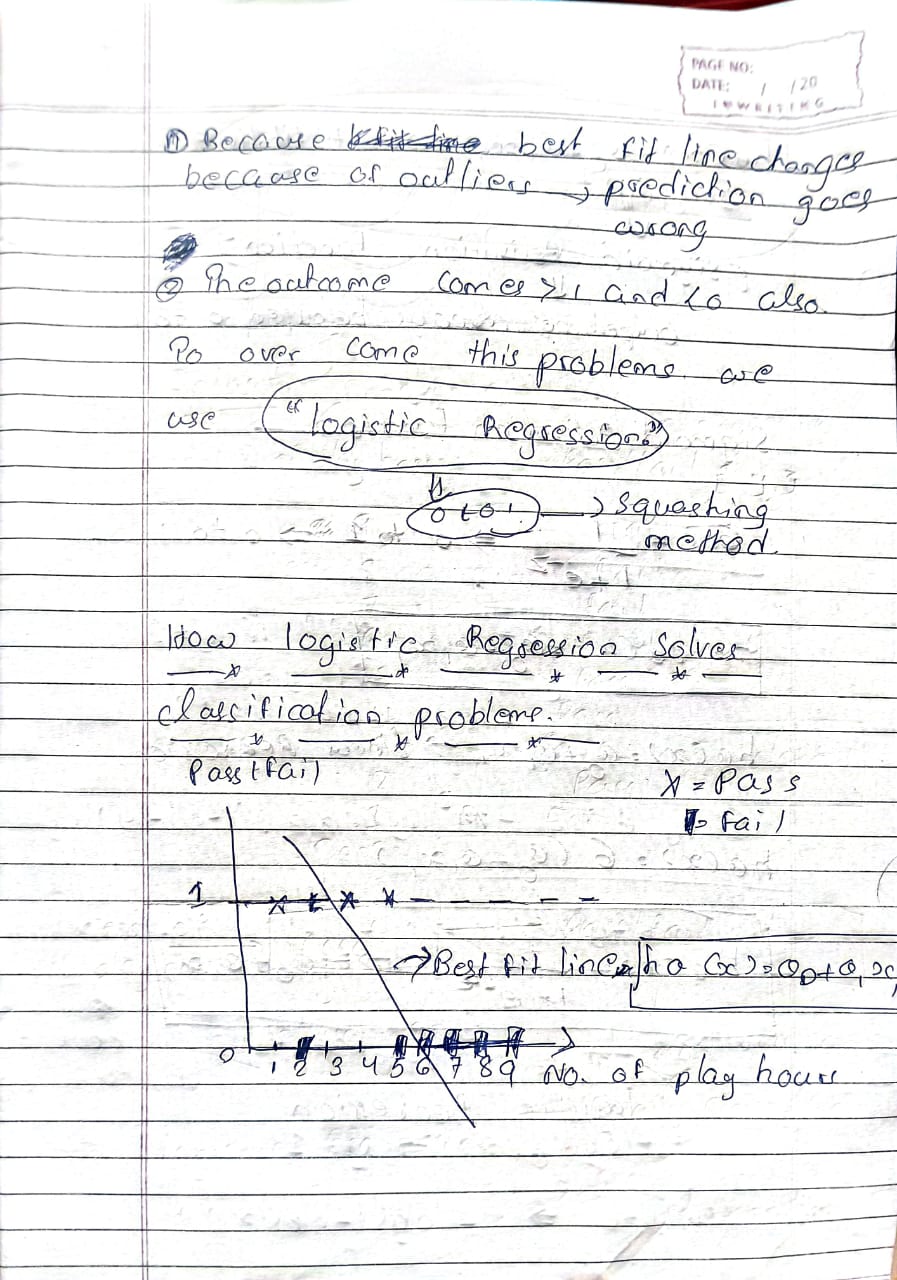 PAGE NO:
DATE: / /20
① Because best fit line changes
because of outliers → prediction goes
wrong
② The outcome comes >1 and <0 also.
To over come this problems we
use "logistic Regression"
0 to 1 → squashing
method.
How logistic Regression solves
classification problems.
Pass/fail
x = Pass
= fail
1
→ Best fit line hθ(x) = θ0 + θ1x
0 1 2 3 4 5 6 7 8 9 No. of play hours